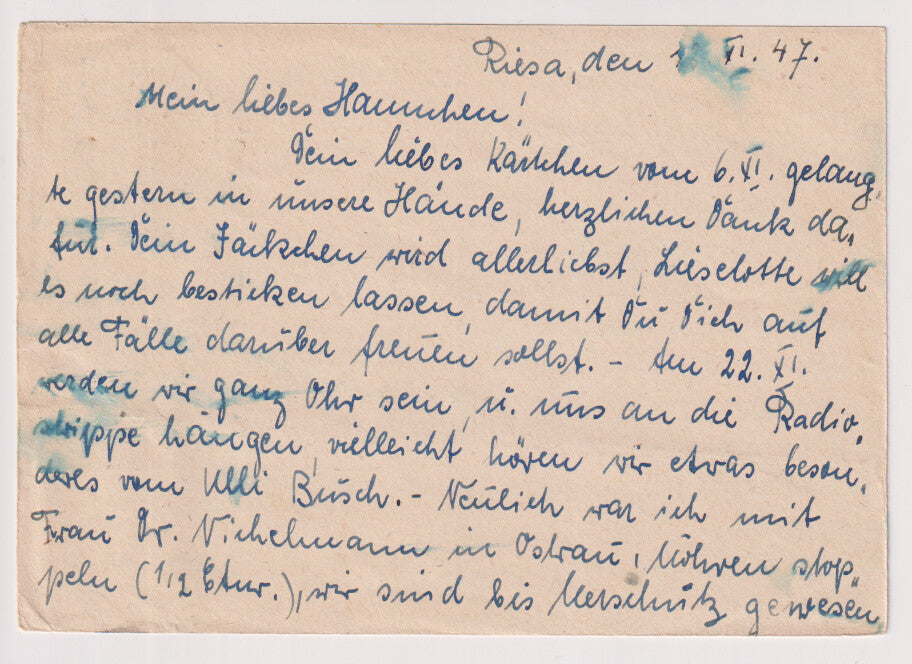 Riesa, den XI. 47.
Mein liebes Hannchen!
Dein liebes Kärtchen vom 6. XI. gelang-
te gestern in unsere Hände, herzlichen Dank da-
für. Dein Jäckchen wird allerliebst, Lieselotte will
es noch besticken lassen, damit Du Dich auf
alle Fälle darüber freuen sollst. – Am 22. XI.
werden wir ganz Ohr sein, u. uns an die Radio-
strippe hängen, vielleicht hören wir etwas beson-
deres vom Ulli Busch. – Neulich war ich mit
Frau Dr. Vichelmann in Ostrau, Möhren stop-
peln (1/2 Ctnr.), wir sind bis Merschütz gewesen,